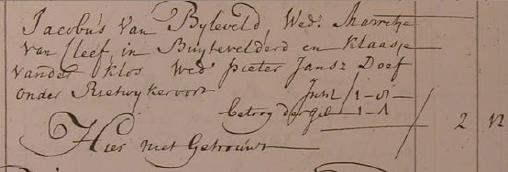 Jacobus van Byleveld, Wedr. Marretje
van Cleef in Buytevelderd en Klaasje
vander Klos Wede. Pieter Jansz Doef
onder Rietwykeroort
betoog der
Hier niet Getrouwt 2